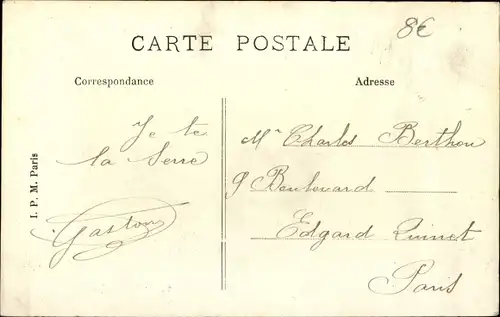 8€
CARTE POSTALE
Correspondance
Adresse
Je te
la serre
Gaston
Mr Charles Berthou
9 Boulevard
Edgard Quinet
Paris
I. P. M. Paris